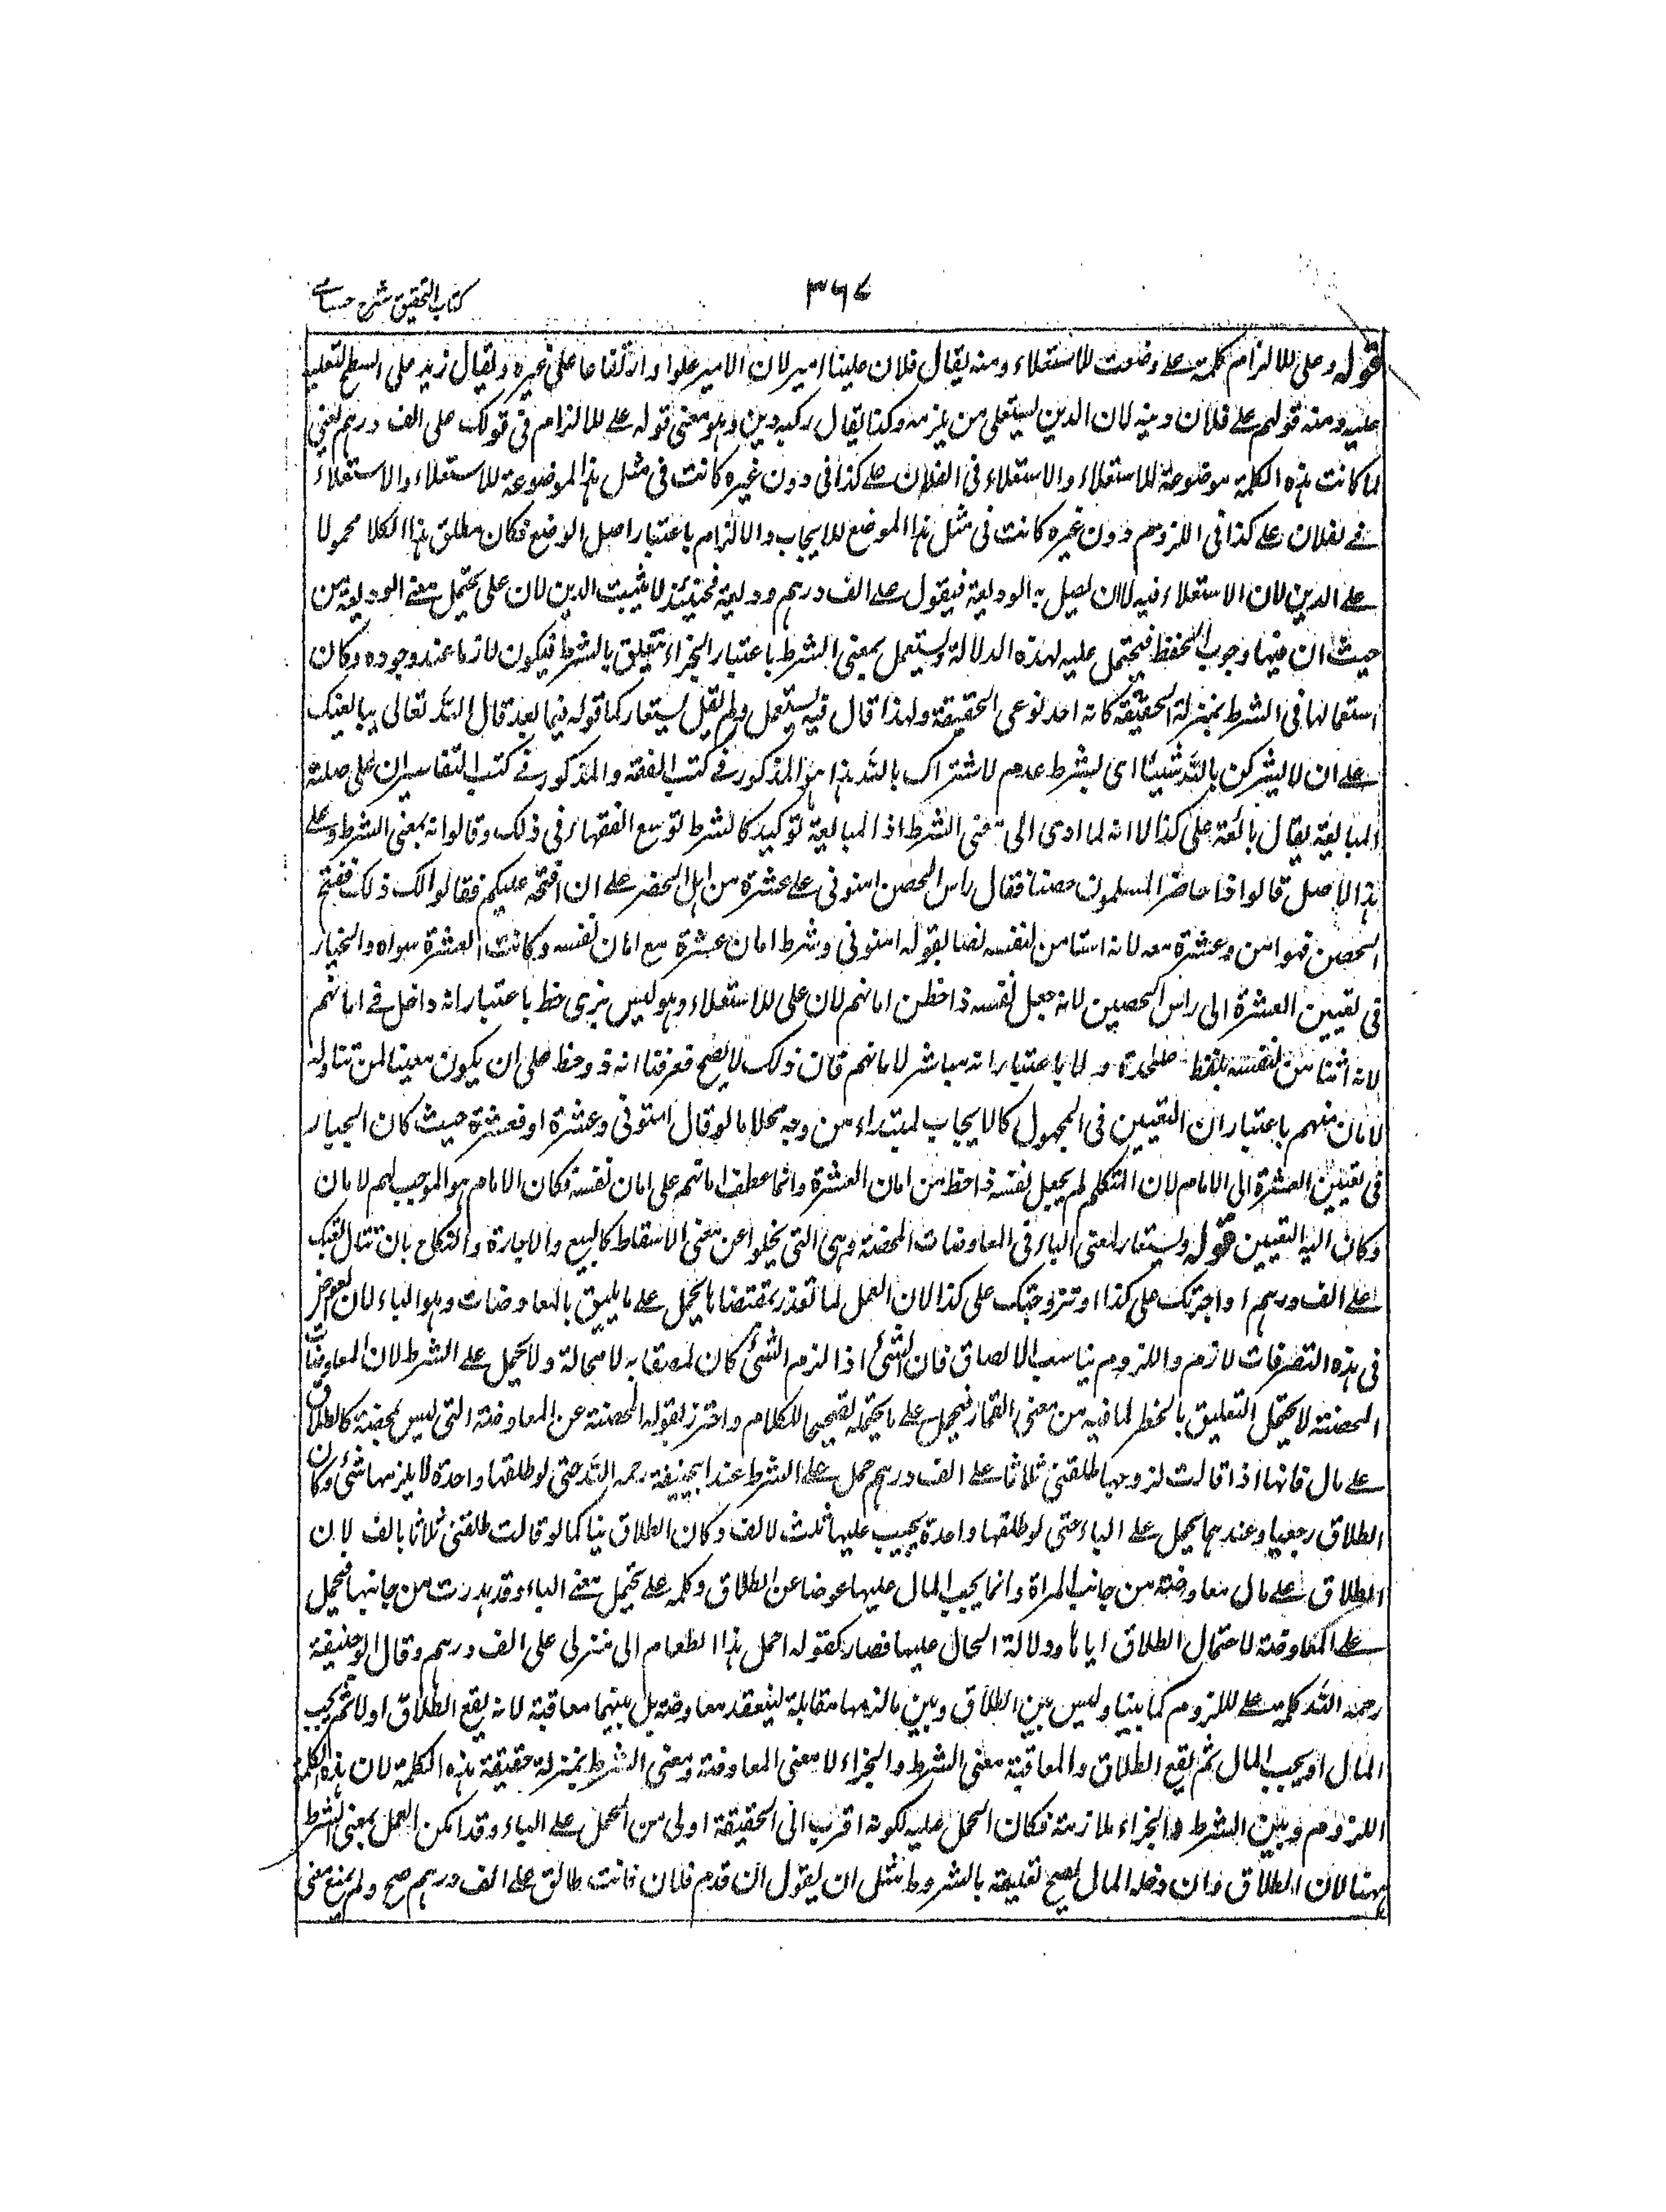 كتاب التحقيق شرح حسامى
٣٦٧
قوله وعلى للالزام كلمة على وضعت للاستعلاء ومنه يقال فلان علينا امير لان الامير علوا وارتفاعا على غيره ويقال زيد على السطح لتعليه
عليه ومنه قولهم على فلان دينه لان الدين يستعلى من يلزمه وكذا يقال ركبه دين وهو معنى قوله على للالزام فى قولك على الف درهم يعنى
لما كانت هذه الكلمة موضوعة للاستعلاء والاستعلاء فى الفلان على كذا فى دون غيره كانت فى مثل هذا لموضوعة للاستعلاء والاستعلاء
فى لفلان على كذا فى اللزوم دون غيره كانت فى مثل هذا الموضع للايجاب والالزام باعتبار اصل الوضع فكان مطلق هذا الكلا محمولا
على الدين لان الاستعلاء فيه لاان يصل به الوديعة فيقول على الف درهم وديعة فحينئذ لا يثبت الدين لان على يحتمل معنى الوديعة من
حيث ان فيها وجوب الحفظ فيحتمل عليه لهذه الدلالة ويستعمل بمعنى الشرط باعتبار الجزاء يتعلق بالشرط فيكون لازما عند وجوده وكان
استعمالها فى الشرط بمنزلة الحقيقة كانه احد نوعى الحقيقة ولهذا قال فيه يستعمل ولم يقل يستعار كما قوله فيما بعد قال الله تعالى يبايعنك
على ان لا يشركن بالله شيئا اى بشرط عدم لاشتراك بالله هذا هو المذكور فى كتب الفقه والمذكور فى كتب التفاسير ان على صلة
المبايعة يقال بائعه على كذا الا انه لما ادى الى معنى الشرط اذ المبايعة توكيد كالشرط توسع الفقهاء فى ذلك وقالوا انه بمعنى الشرط وعلى
هذا الاصل قالوا اذا حاصر المسلمون حصنا فقال راس الحصن امنونى على عشرة من اهل الحضر على ان افتحه عليكم فقالوا لك ذلك ففتح
الحصن فهو امن وعشرة معه لانه استامن لنفسه نصا بقوله امنونى وشرط امان عشرة مع امان نفسه وكانت العشرة سواه والخيار
فى تعيين العشرة الى راس الحصين لانه جعل لنفسه ذا حظ من امانهم لان على للاستعلاء وهو ليس بذى حظ باعتبار انه داخل فى امانهم
لانه استامن لنفسه بلفظ على حدة ولا باعتبار انه مباشر لامانهم فان ذلك لا يصح فعرفنا انه ذو حظ على ان يكون معينا لمن تناوله
لامان منهم باعتبار ان التعيين فى المجهول كالايجاب لمبتداء من وجه بخلاف ما لو قال امنونى وعشرة او فعشرة حيث كان الخيار
فى تعيين العشرة الى الامام لان المتكلم لم يجعل نفسه ذا حظ من امان العشرة وانما عطف امانهم على امان نفسه فكان الامام هو الموجب لهم لامان
وكان اليه التعيين قوله ويستعار لمعنى الباء فى المعاوضات المحضة وهى التى يخلوا عن معنى الاسقاط كالبيع والاجارة والنكاح بان تقال بعتك
على الف درهم او اجرتك على كذا او تزوجتك على كذا لان العمل لما تعذر بمقتضاها يحمل على ما يليق بالمعاوضات وهو الباء لان العوض
فى هذه التصرفات لازم واللزوم يناسب الالصاق فان الشئ اذا لزم الشئ كان ملصقا به لا محالة ولا يحمل على الشرط لان المعاوضات
المحضة لا يحتمل التعليق بالخطر لما فيه من معنى القمار فيحمل على ما يحتمله تصحيحا للكلام واحترز بقوله المحضة عن المعاوضة التى ليس بمحضة كالطلاق
على مال فانها اذا قالت لزوجها طلقنى ثلاثا على الف درهم حمل على الشرط عند ابيحنيفة رحمه الله حتى لو طلقها واحدة لا يلزمها شئ وكان
الطلاق رجعيا وعندهما يحمل على الباء حتى لو طلقها واحدة يجب عليها ثلث لالف وكان الطلاق بينا كما لو قالت طلقنى ثلاثا بالف لان
الطلاق على مال معاوضة من جانب المراة وانما يجب المال عليها عوضا عن الطلاق وكلمة على يحتمل معنى الباء وقد بدرت من جانبها فيحمل
على المعاوضة لاحتمال الطلاق اياها ودلالة الحال عليها فصار كقوله احمل هذا الطعام الى منزلى على الف درهم وقال ابو حنيفة
رحمه الله كلمة على للزوم كما بينا وليس بين الطلاق وبين مالزمها مقابلة لينعقد معاوضة بل بينهما معاقبة لانه يقع الطلاق اولا ثم يجب
المال او يجب المال ثم يقع الطلاق والمعاقبة معنى الشرط والجزاء لا معنى المعاوضة ومعنى الشرط بمنزلة حقيقة هذه الكلمة لان هذه الكلمة
اللزوم وبين الشرط والجزاء ملازمة فكان الحمل عليه لكونه اقرب الى الحقيقة اولى من الحمل على الباء وقد امكن العمل بمعنى الشرط
ههنا لان الطلاق وان دخله المال يصح تعليقه بالشروط مثل ان يقول ان قدم فلان فانت طالق على الف درهم صح ولم يمنع معنى